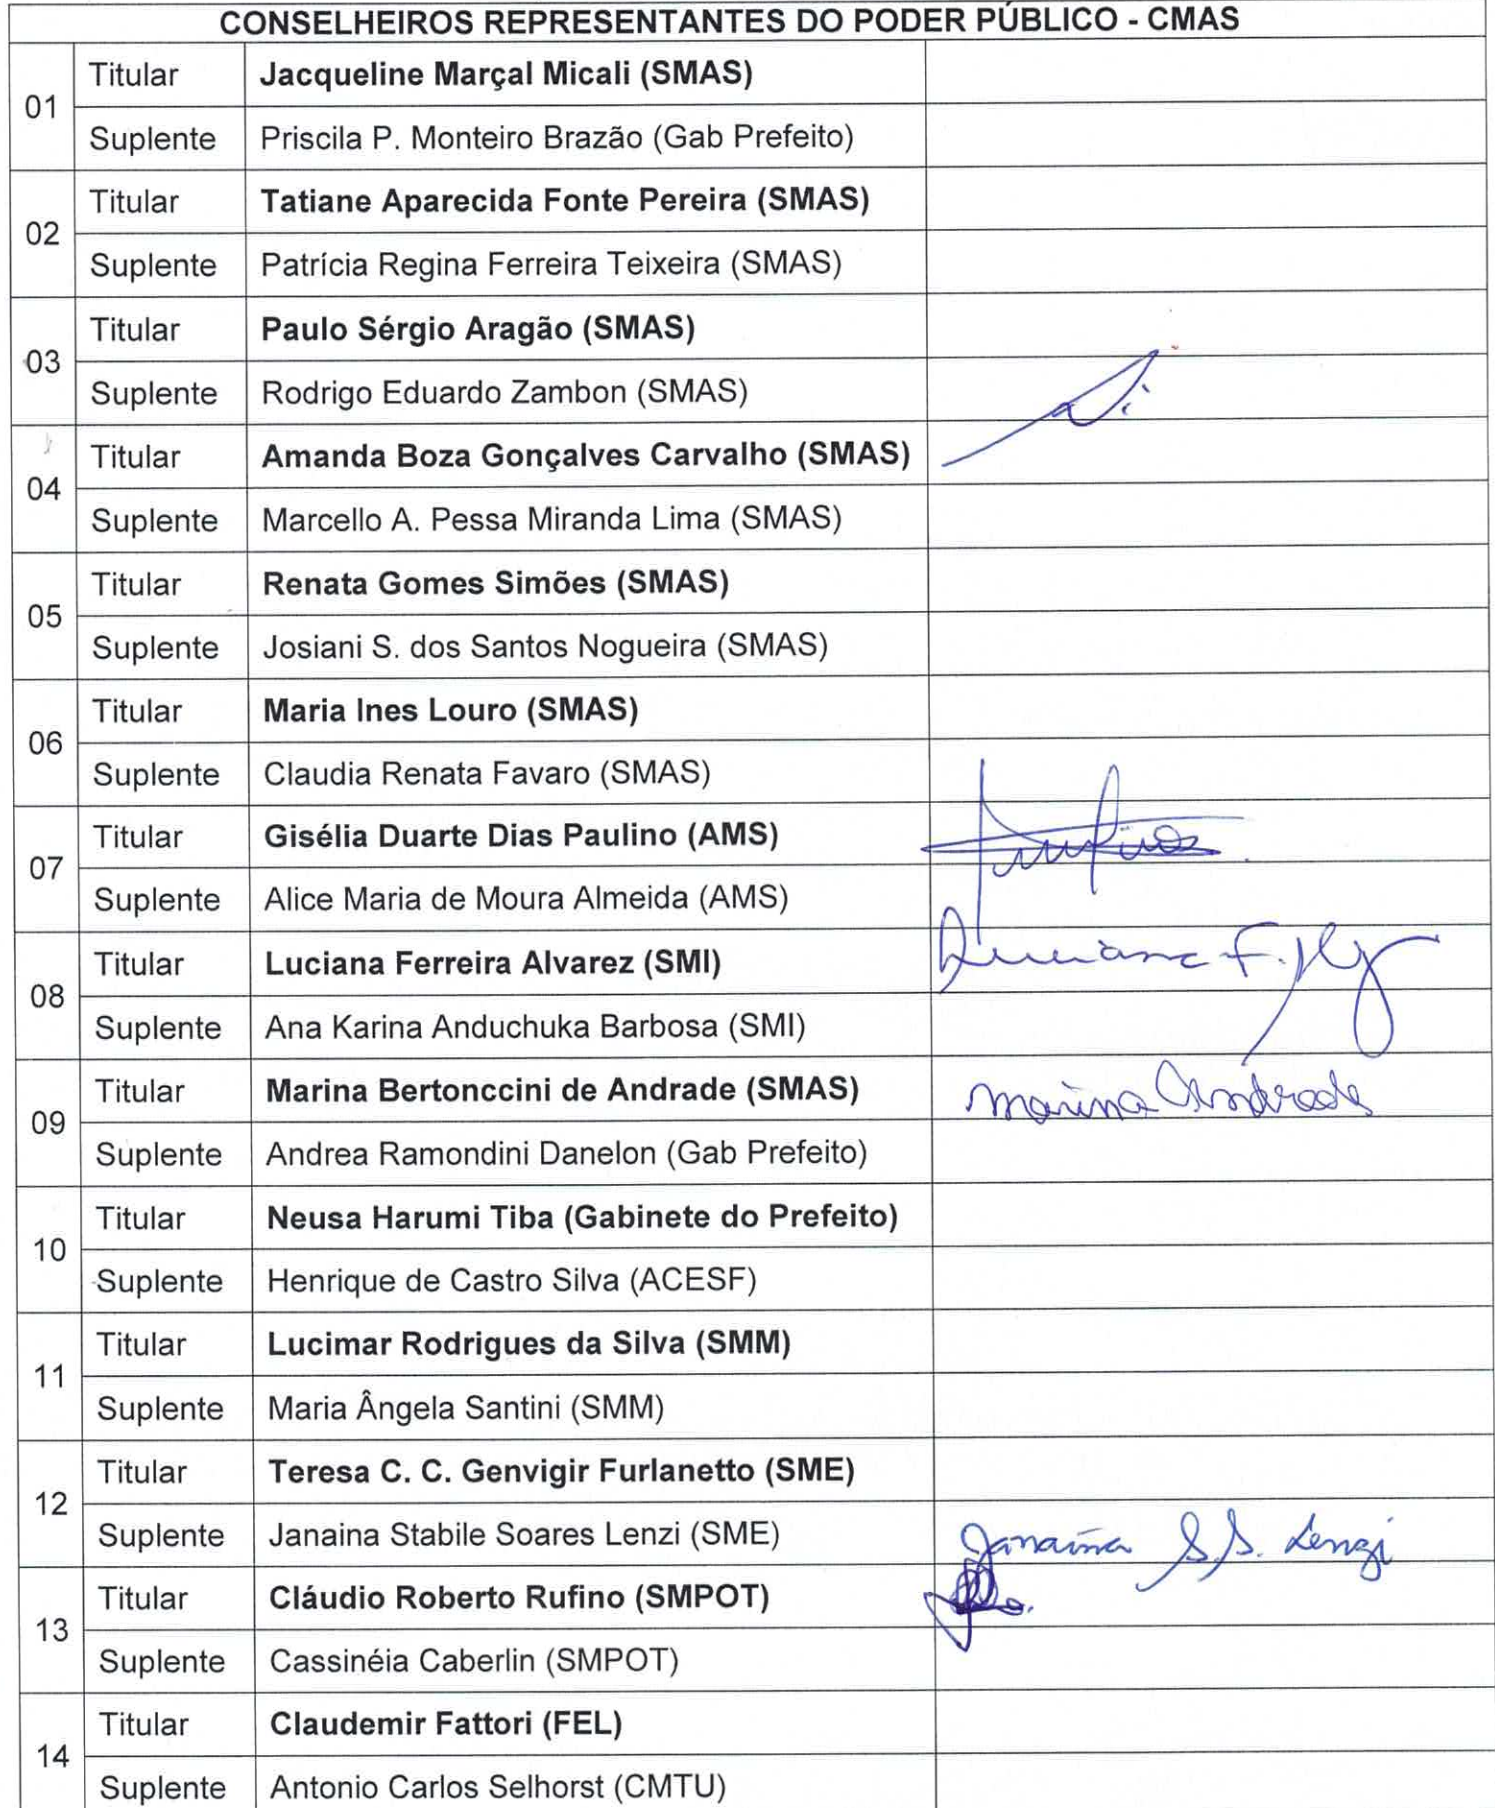 CONSELHEIROS REPRESENTANTES DO PODER PÚBLICO - CMAS
01 Titular Jacqueline Marçal Micali (SMAS)
Suplente Priscila P. Monteiro Brazão (Gab Prefeito)
02 Titular Tatiane Aparecida Fonte Pereira (SMAS)
Suplente Patrícia Regina Ferreira Teixeira (SMAS)
03 Titular Paulo Sérgio Aragão (SMAS)
Suplente Rodrigo Eduardo Zambon (SMAS)
04 Titular Amanda Boza Gonçalves Carvalho (SMAS)
Suplente Marcello A. Pessa Miranda Lima (SMAS)
05 Titular Renata Gomes Simões (SMAS)
Suplente Josiani S. dos Santos Nogueira (SMAS)
06 Titular Maria Ines Louro (SMAS)
Suplente Claudia Renata Favaro (SMAS)
07 Titular Gisélia Duarte Dias Paulino (AMS)
Suplente Alice Maria de Moura Almeida (AMS)
08 Titular Luciana Ferreira Alvarez (SMI) Luciana F.
Suplente Ana Karina Anduchuka Barbosa (SMI)
09 Titular Marina Bertonccini de Andrade (SMAS) Marina Andrade
Suplente Andrea Ramondini Danelon (Gab Prefeito)
10 Titular Neusa Harumi Tiba (Gabinete do Prefeito)
Suplente Henrique de Castro Silva (ACESF)
11 Titular Lucimar Rodrigues da Silva (SMM)
Suplente Maria Ângela Santini (SMM)
12 Titular Teresa C. C. Genvigir Furlanetto (SME)
Suplente Janaina Stabile Soares Lenzi (SME) Janaína S.S. Lenzi
13 Titular Cláudio Roberto Rufino (SMPOT)
Suplente Cassinéia Caberlin (SMPOT)
14 Titular Claudemir Fattori (FEL)
Suplente Antonio Carlos Selhorst (CMTU)